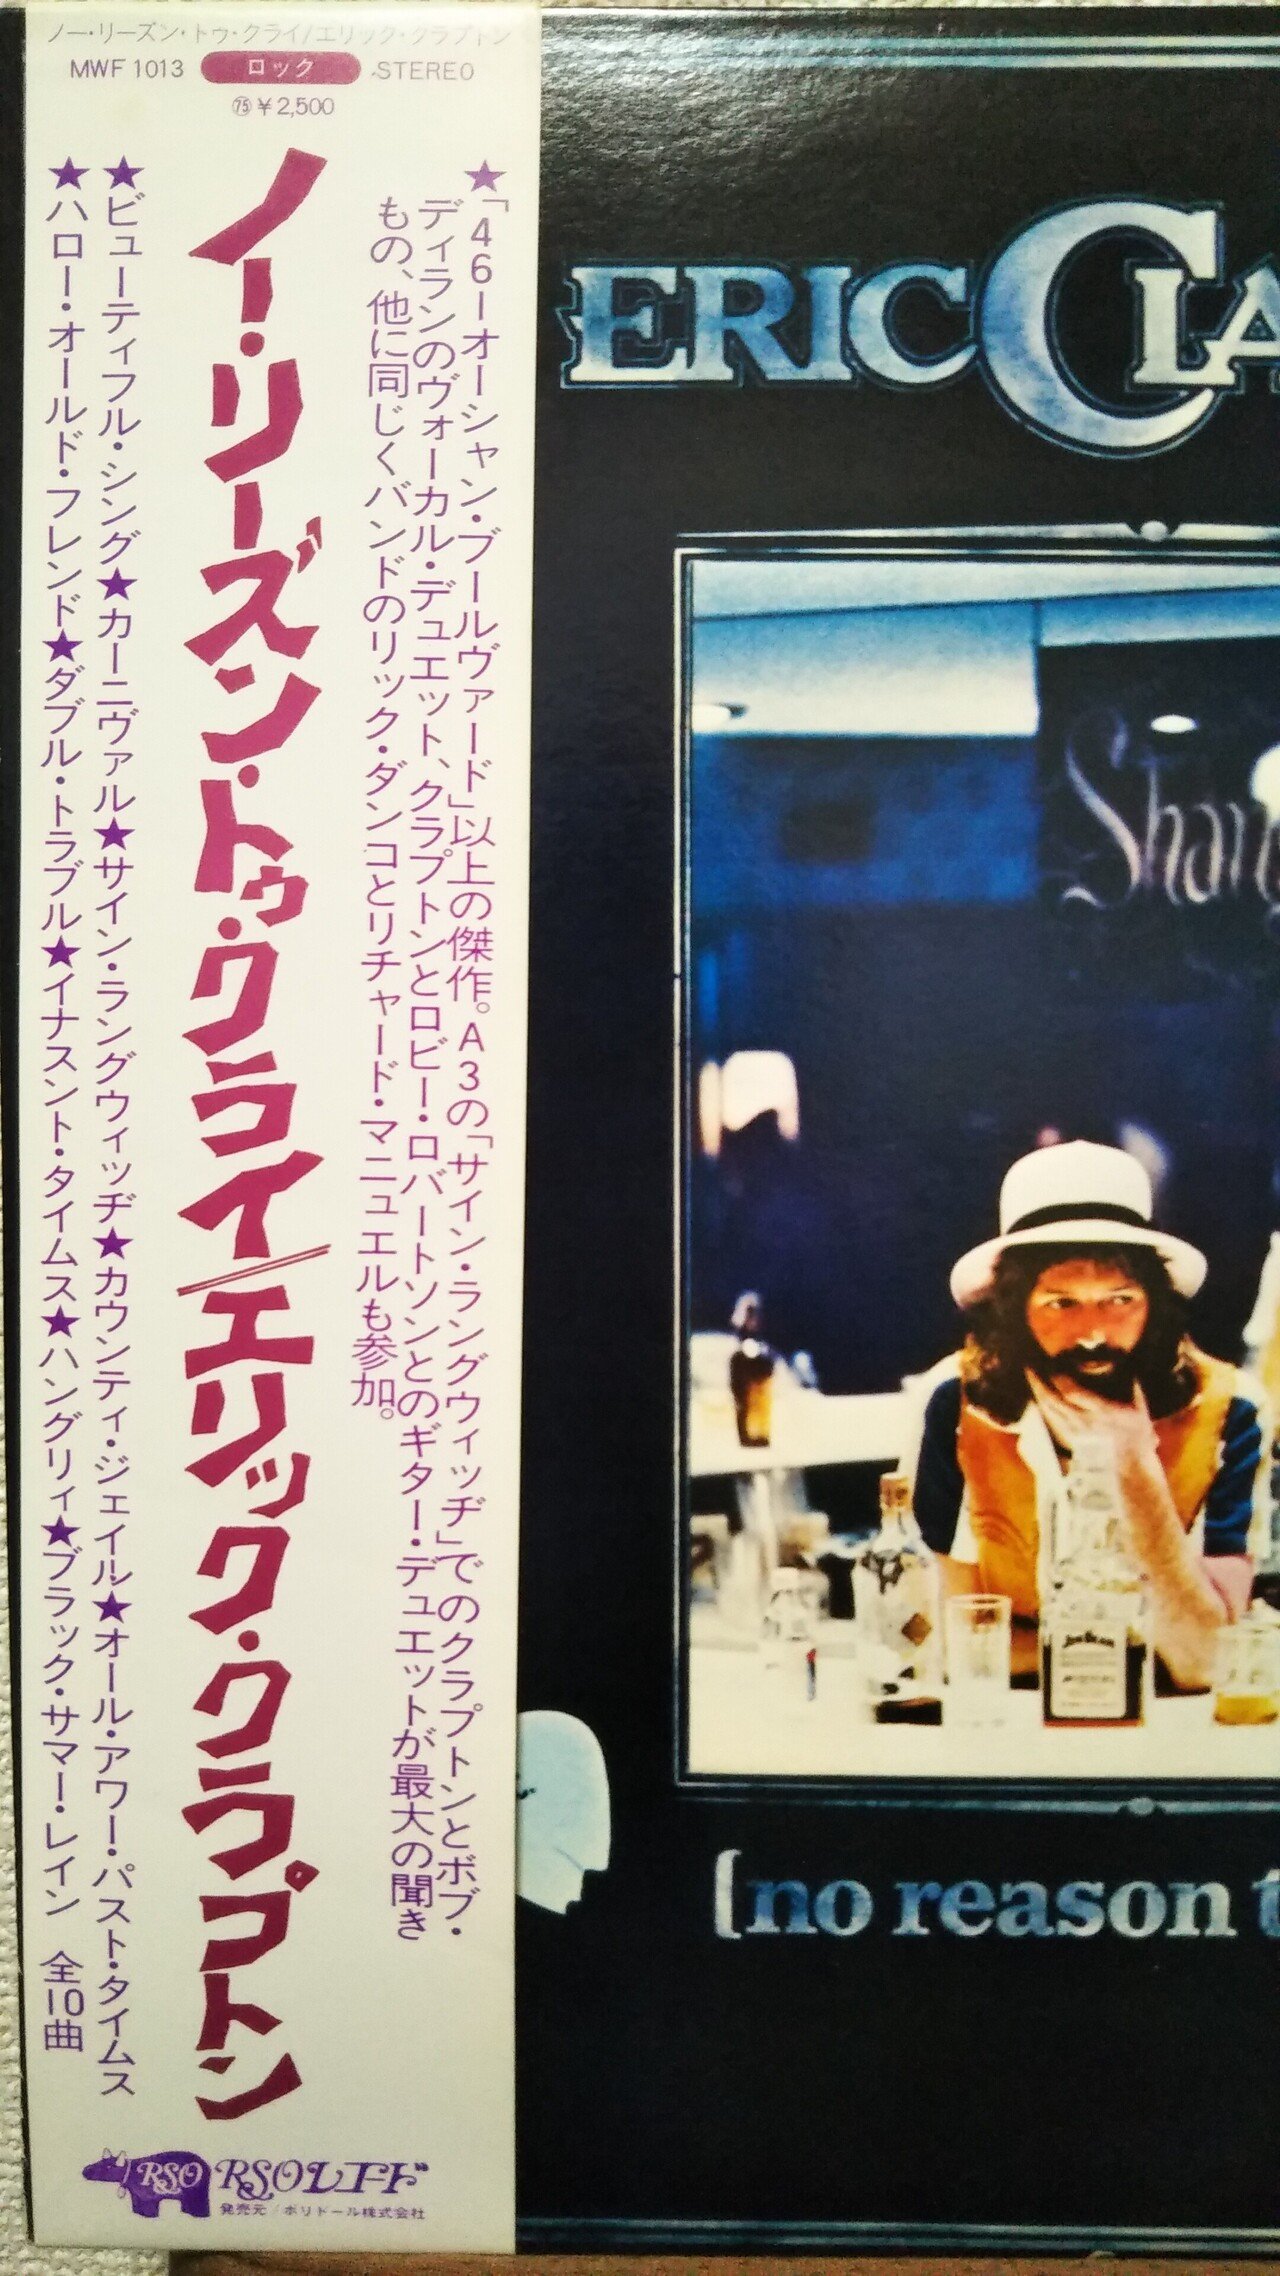 ノー・リーズン・トゥ・クライ/エリック・クラプトン
MWF 1013 ロック STEREO
㊄¥2,500
★「46ーオーシャン・ブールヴァード」以上の傑作。A3の「サイン・ラングウィッヂ」でのクラプトンとボブ・
ディランのヴォーカル・デュエット、クラプトンとロビー・ロバートソンとのギター・デュエットが最大の聞き
もの、他に同じくバンドのリック・ダンコとリチャード・マニュエルも参加。
ノー・リーズン・トゥ・クライ/エリック・クラプトン
★ビューティフル・シング★カーニヴァル★サイン・ラングウィッヂ★カウンティ・ジェイル★オール・アワー・パスト・タイムス
★ハロー・オールド・フレンド★ダブル・トラブル★イナスント・タイムス★ハングリィ★ブラック・サマー・レイン 全10曲
RSO RSOレコード
発売元/ポリドール株式会社
ERIC CLA
Shang
JIM BEAM
(no reason t